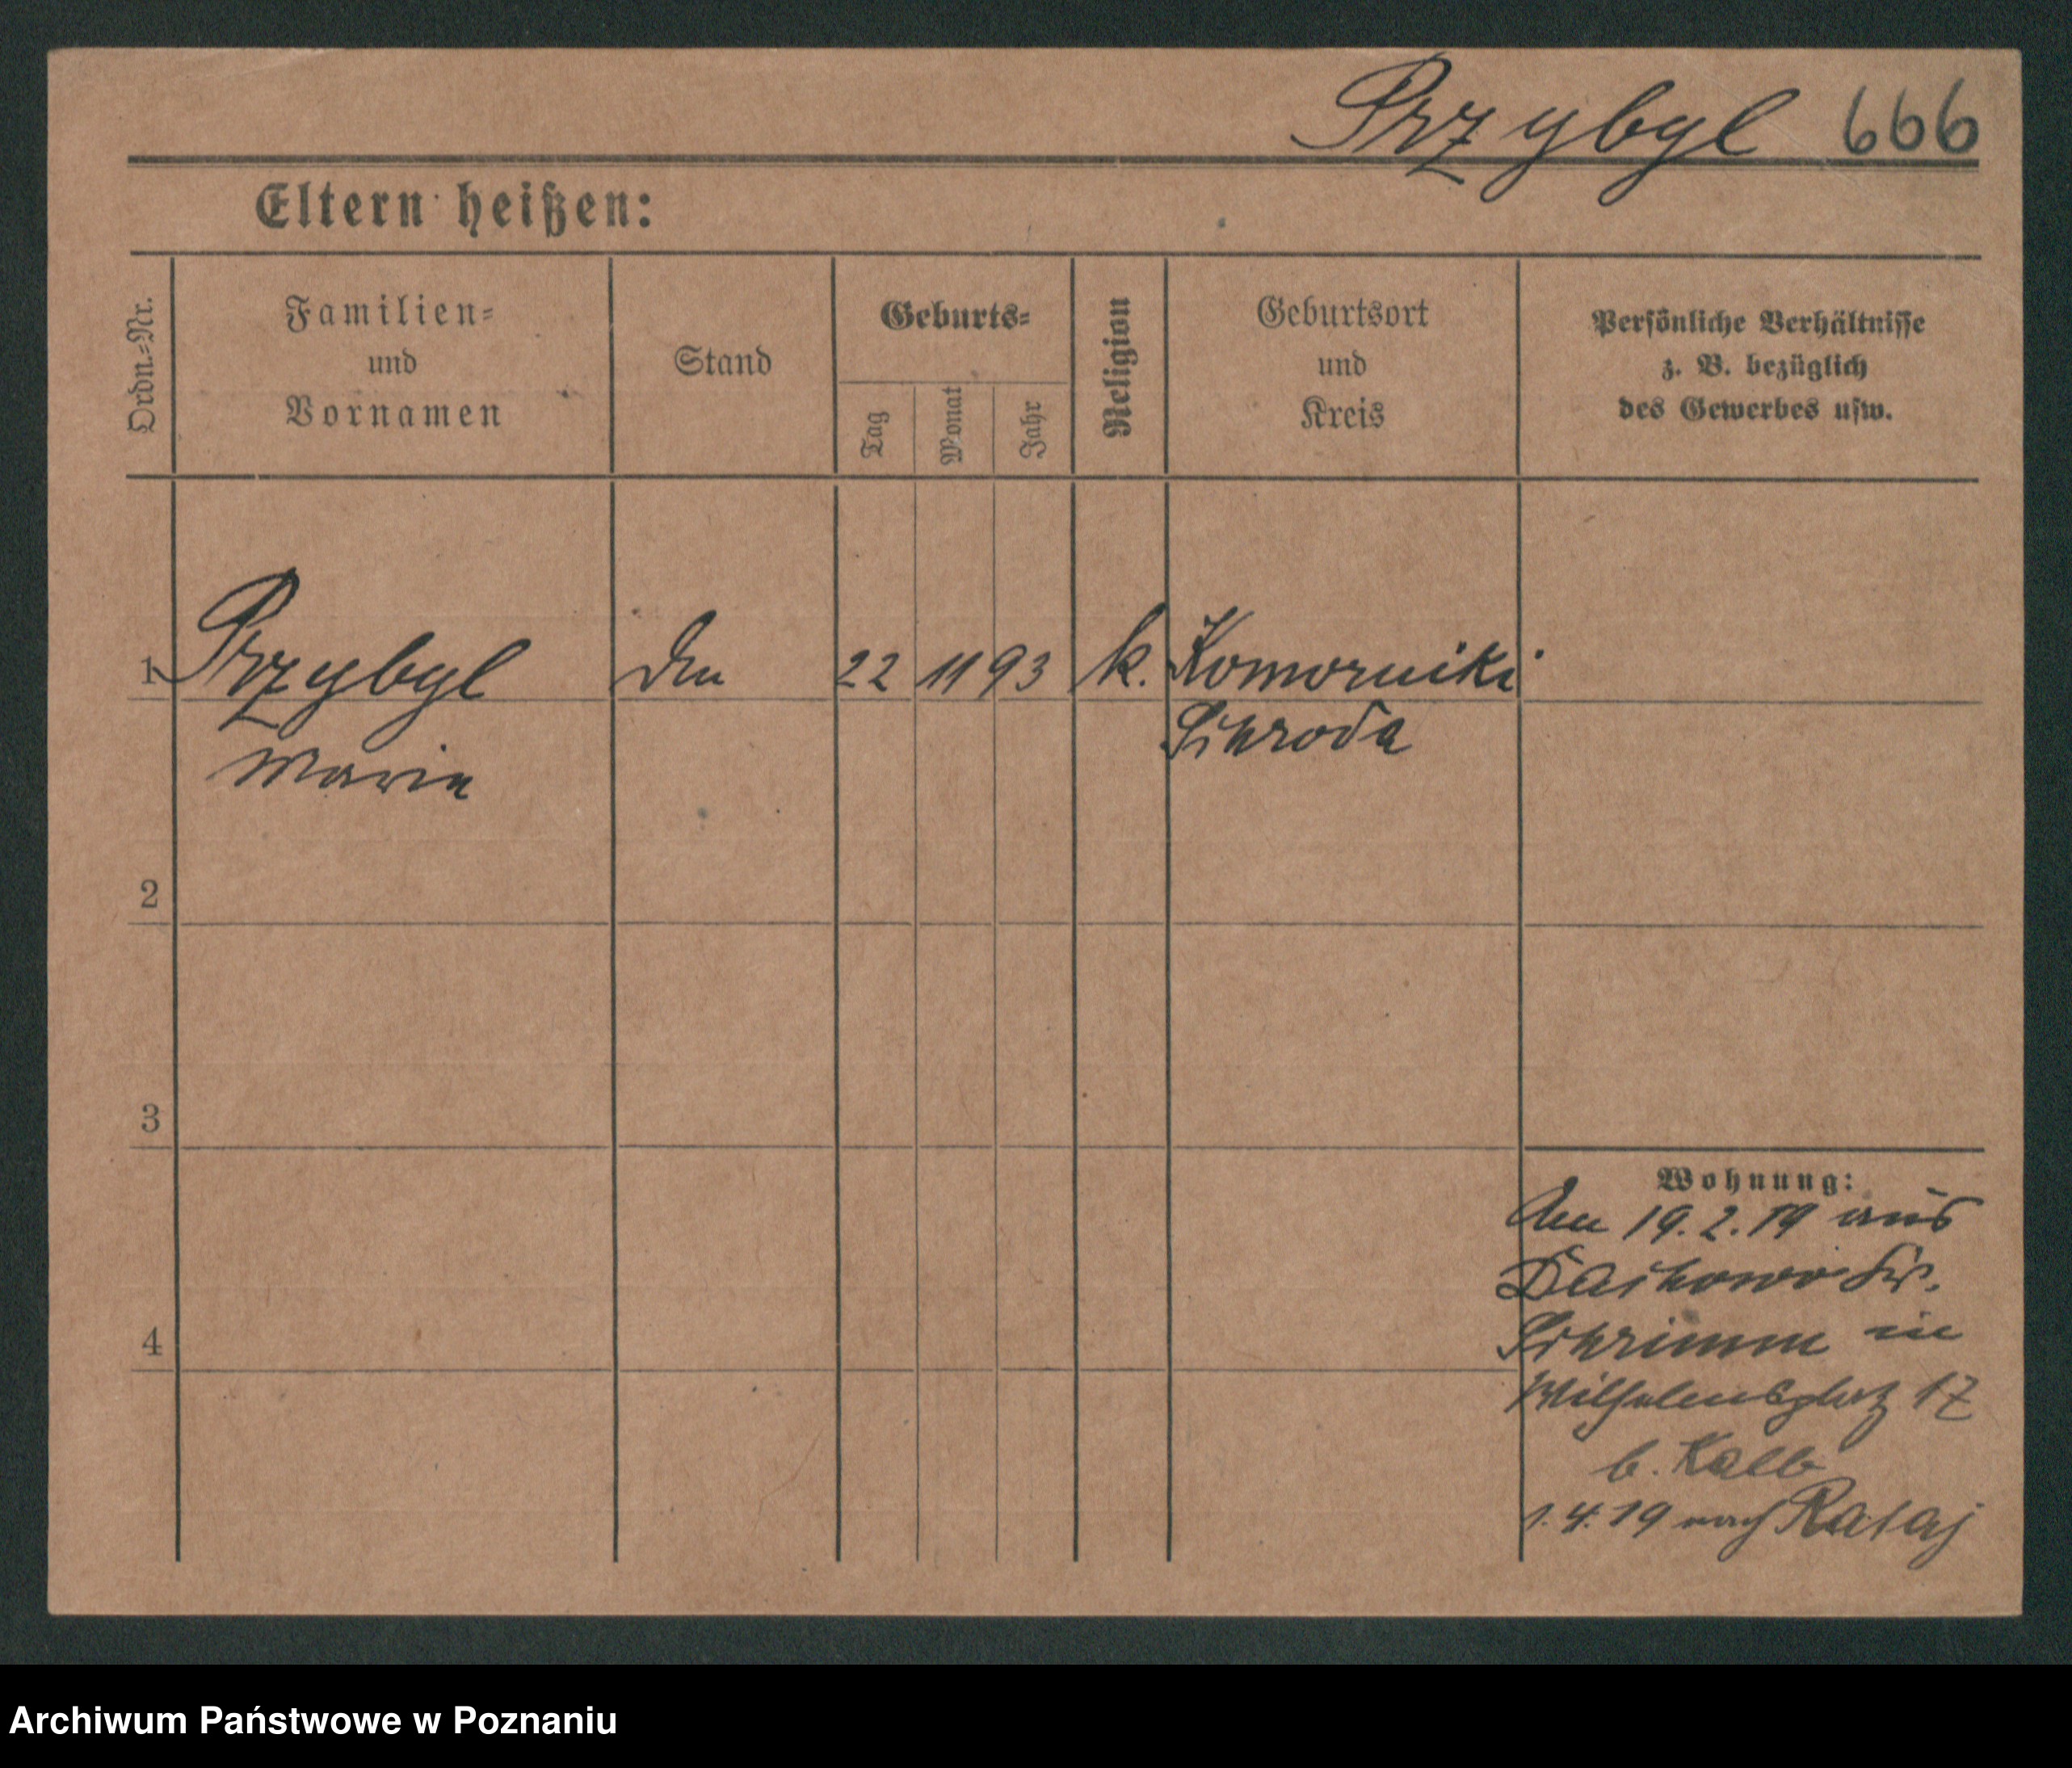 Przybyl 666
Eltern heißen:
Ordn.-Nr.
Familien-
und
Vornamen
Stand
Geburts-
Tag
Monat
Jahr
Religion
Geburtsort
und
Kreis
Persönliche Verhältnisse
z. B. bezüglich
des Gewerbes usw.
1 Przybyl 22 11 93 k. Komorniki
Marie Schroda
2
3
Wohnung:
19.2.19 aus
Daschowo Kr.
Schrimm in
4
Wilhelmsplatz 17
b. Kalb
1.4.19 nach Rataj
Archiwum Państwowe w Poznaniu